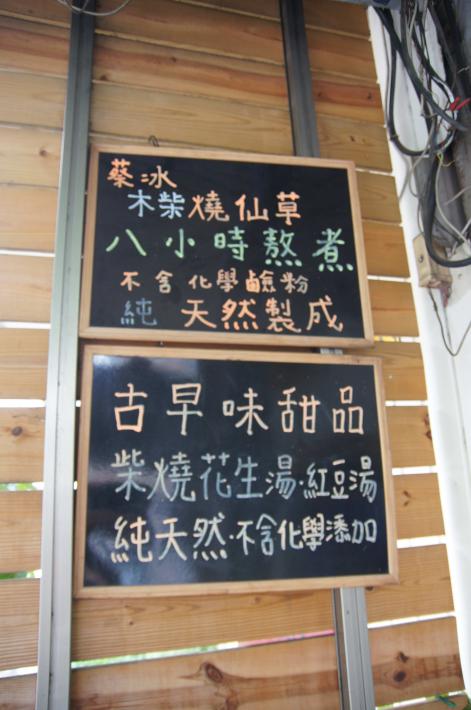 蔡冰
木柴燒仙草
八小時熬煮
不含化學鹼粉
純天然製成
古早味甜品
柴燒花生湯·紅豆湯
純天然·不含化學添加